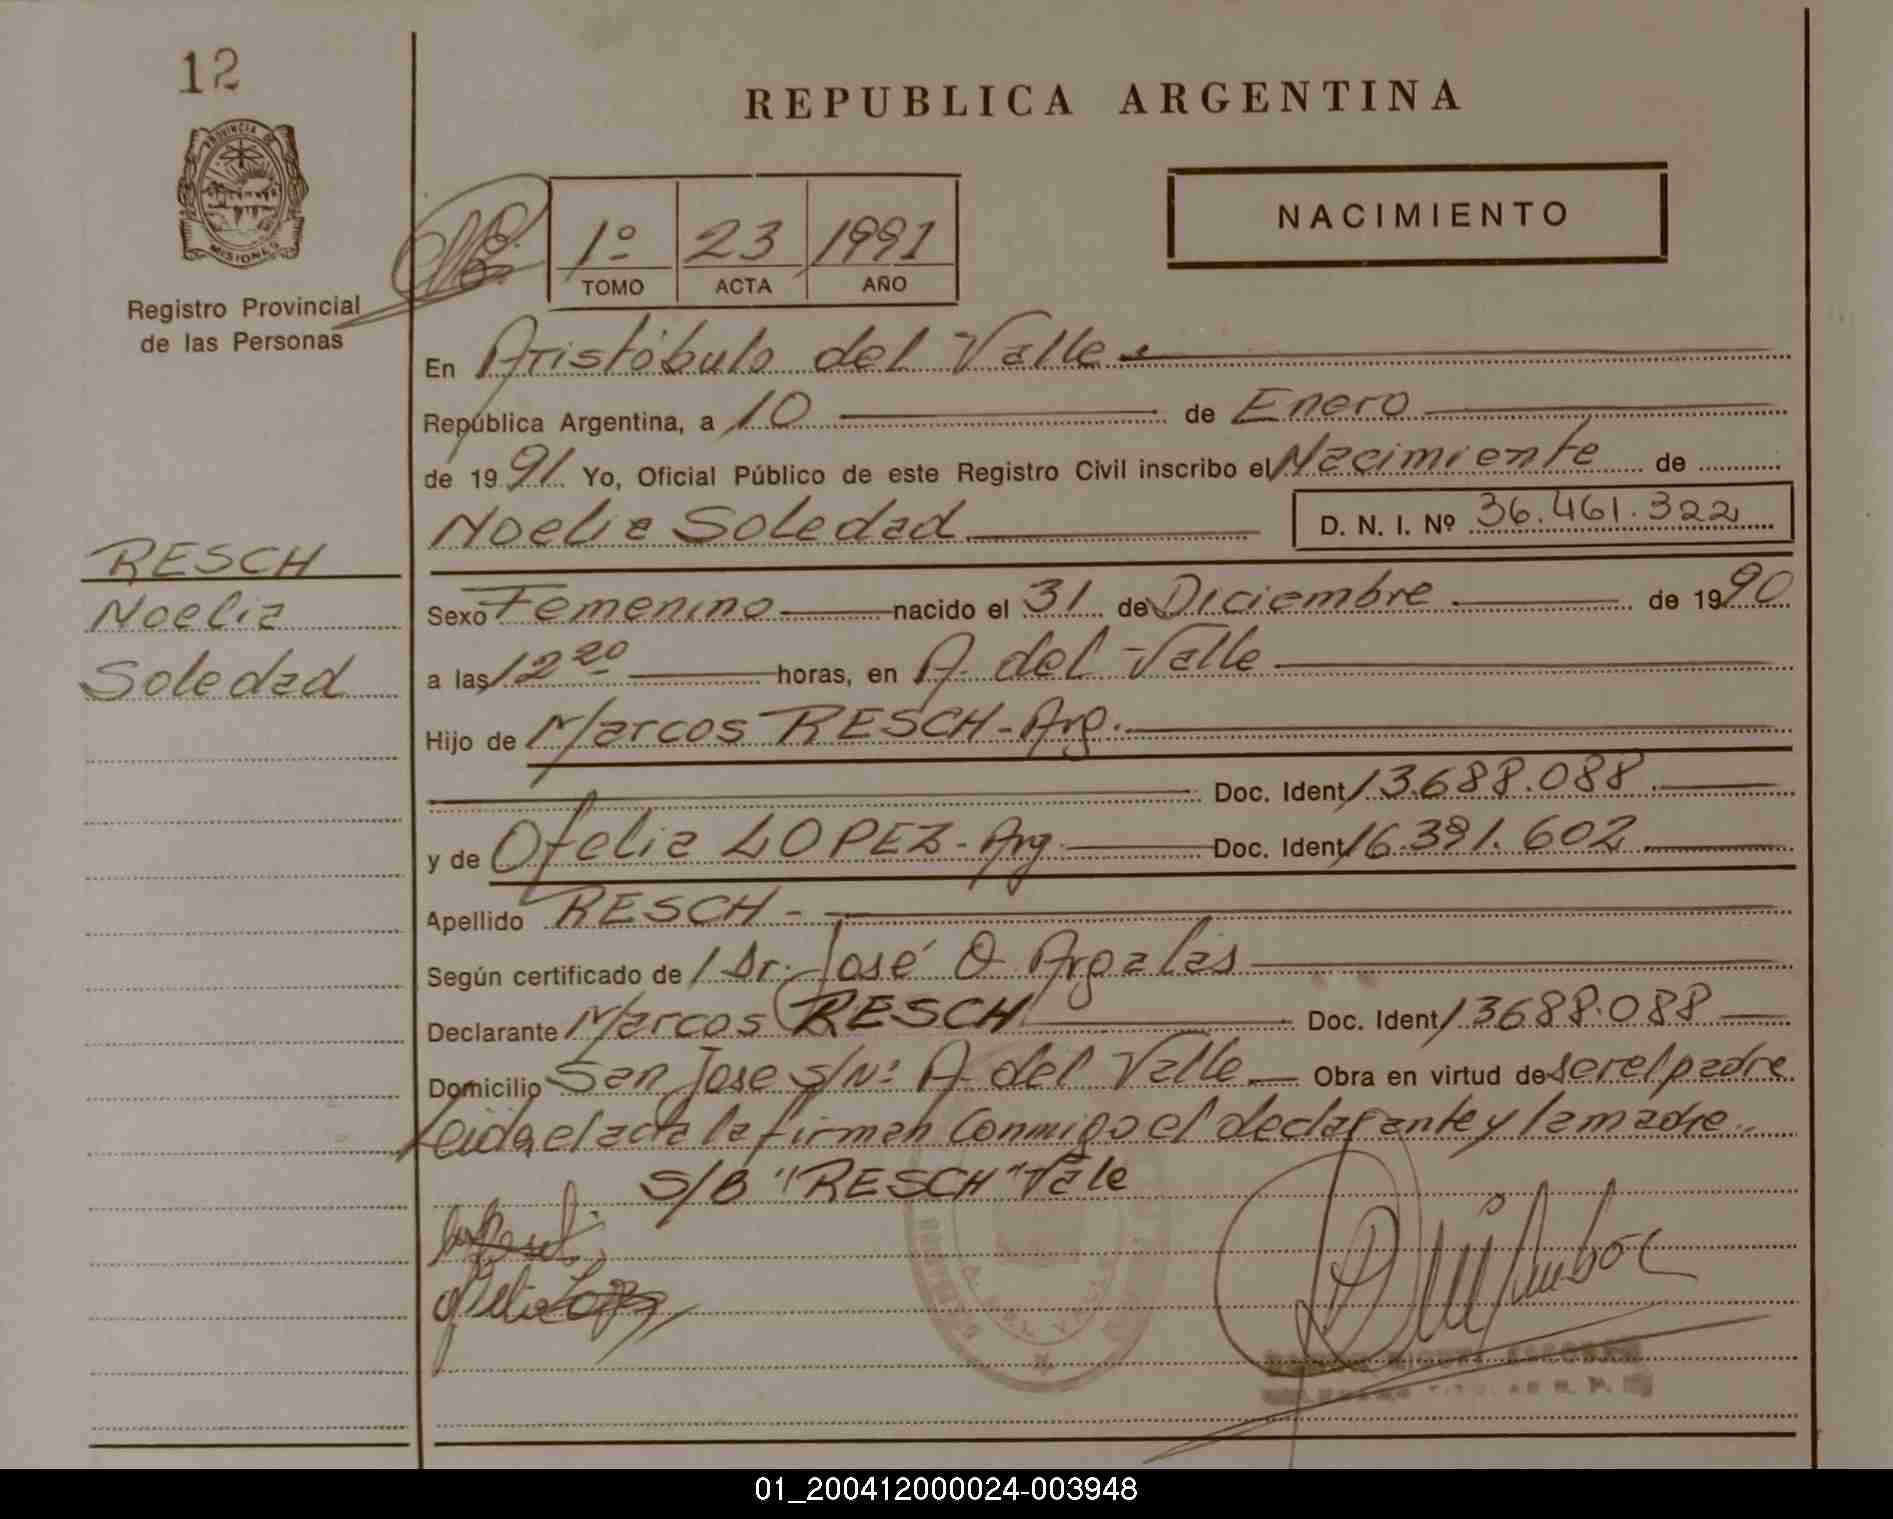 12
REPUBLICA ARGENTINA
PROVINCIA DE
MISIONES
Registro Provincial
de las Personas
1º 23 1991
TOMO ACTA AÑO
NACIMIENTO
En Aristóbulo del Valle
República Argentina, a 10 de Enero
de 1991 Yo, Oficial Público de este Registro Civil inscribo el Nacimiento de
Noelia Soledad D. N. I. Nº 36.461.322
RESCH
Noelia
Soledad
Sexo Femenino nacido el 31 de Diciembre de 1990
a las 12 20 horas, en A. del Valle
Hijo de Marcos RESCH - Arg.
Doc. Ident 13.688.088
y de Ofelia LOPEZ - Arg. Doc. Ident 16.391.602
Apellido RESCH -
Según certificado de / Dr. José O. Argalas
Declarante Marcos RESCH Doc. Ident 13688.088
Domicilio San Jose S/Nº A. del Valle Obra en virtud de ser el padre
Leida el acta la firman conmigo el declarante y la madre
S/B "RESCH" Vale
Ofelia Lopez
01_200412000024-003948